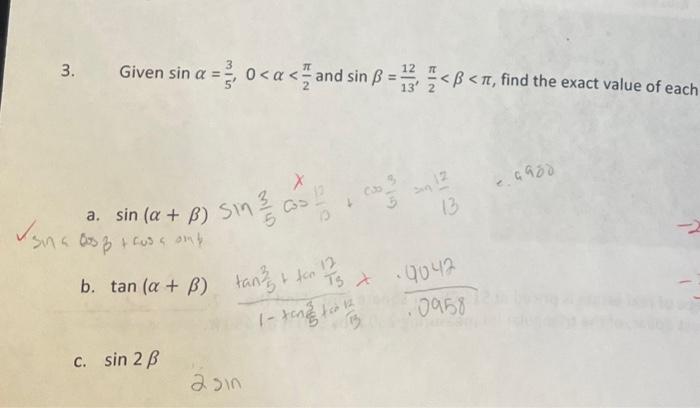 3. Given sin α = 3/5, 0 < α < π/2 and sin β = 12/13, π/2 < β < π, find the exact value of each
a. sin (α + β) sin 3/5 cos 12/13 + cos 3/5 sin 12/13 .9900
✓ sin α cos β + cos α sin β
b. tan (α + β) tan 3/5 + tan 12/13 / 1 - tan 3/5 tan 12/13 x .4042 / .0958
c. sin 2β
2 sin